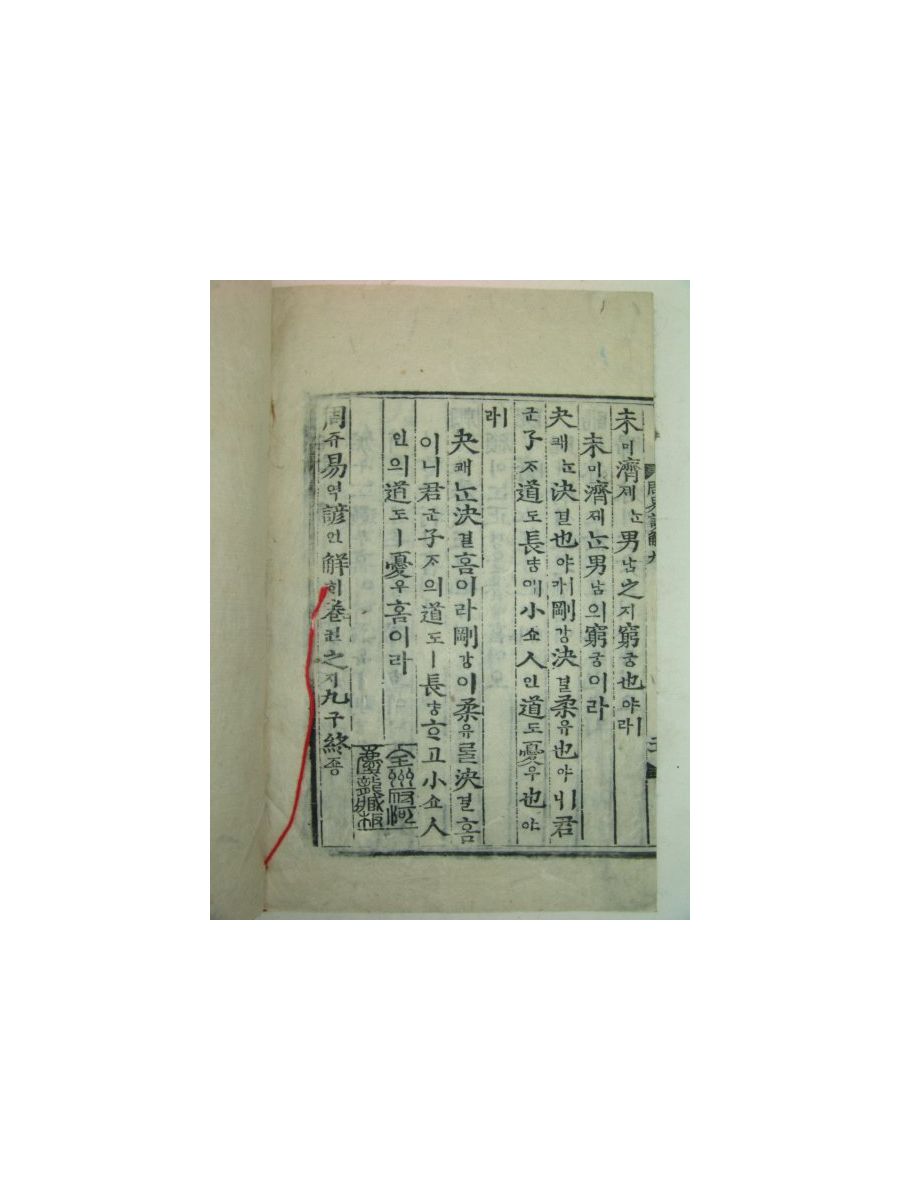 周易諺解九
未미濟졔ᄂᆞᆫ男남之지窮궁也야ㅣ라
未미濟졔ᄂᆞᆫ男남의窮궁이라
夬쾌ᄂᆞᆫ決결也야ㅣ라剛강決결柔유也야ㅣ니君
군子ᄌᆞ道도長쟝애小쇼人인道도憂우也야
ㅣ라
夬쾌ᄂᆞᆫ決결홈이라剛강이柔유ᄅᆞᆯ決결홈
이니君군子ᄌᆞ의道도ㅣ長쟝ᄒᆞ고小쇼人
인의道도ㅣ憂우홈이라
全州府河
慶龍藏板
周쥬易역諺언解ᄒᆡ卷권之지九구終죵